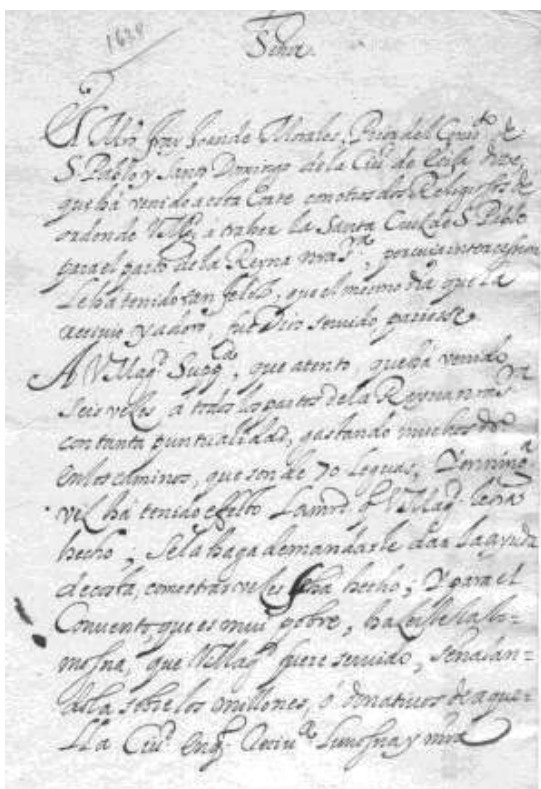 1638
Señor.
El Mro. fray Juan de Morales, Prior del Convto de
S. Pablo y Santo Domingo de la Ciud. de Ecija dize
que há venido a esta Corte con otros dos Religiosos de
orden de VMagd. á traher la Santa Cruz de S. Pablo
para el parto de la Reyna nra Sra, por cuia intercession
le ha tenido tan feliz, que el mesmo dia que la
recivio y adoró, fue Dios servido pariesse.
A VMagd. Suppca, que atento, que há venido
seis vezes á todos los partos de la Reyna nra Sra
con tanta puntualidad, gastando muchos ds.
en los caminos, que son de 70 leguas; Y en ninga
vez há tenido effecto la mrd. q VMagd. le ha
hecho; Se la haga de mandarle dar la ayuda
de costa, como otras vezes se ha hecho; Y para el
Convento que es mui pobre, hazelle la li=
mosna, que VMagd. fuere servido, señalan=
dola sobre los millones, ó donativos de aque=
lla Ciud. en q. Reciva limosna y mrd